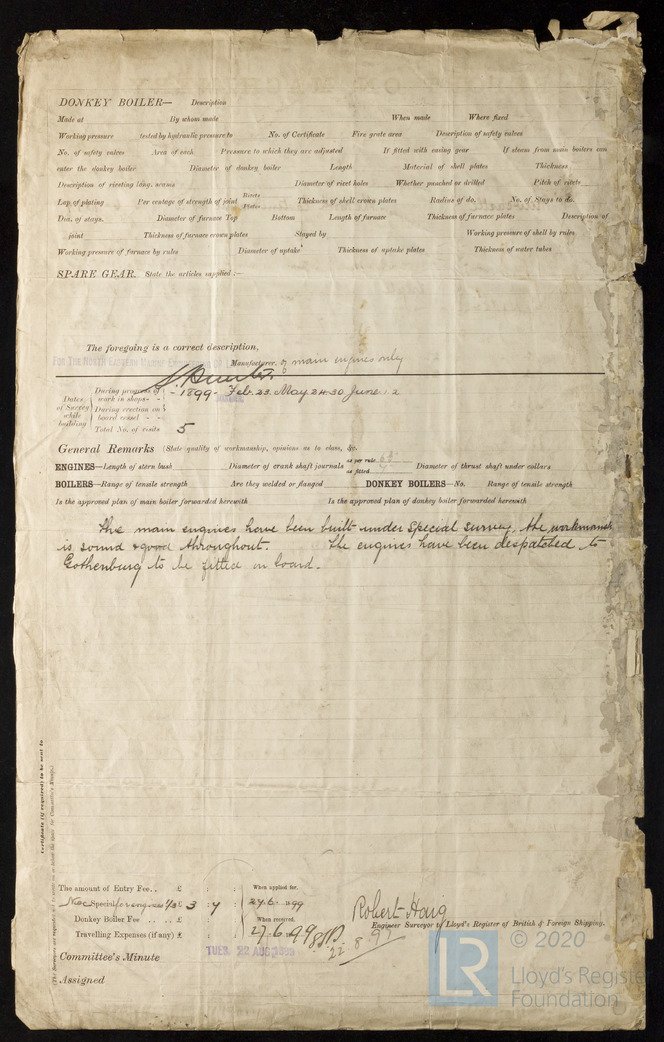 DONKEY BOILER— Description
Made at By whom made When made Where fixed
Working pressure tested by hydraulic pressure to No. of Certificate Fire grate area Description of safety valves
No. of safety valves Area of each Pressure to which they are adjusted If fitted with easing gear If steam from main boilers can
enter the donkey boiler Diameter of donkey boiler Length Material of shell plates Thickness
Description of riveting long. seams Diameter of rivet holes Whether punched or drilled Pitch of rivets
Lap of plating Per centage of strength of joint Rivets Plates Thickness of shell crown plates Radius of do. No. of Stays to do.
Dia. of stays. Diameter of furnace Top Bottom Length of furnace Thickness of furnace plates Description of
joint Thickness of furnace crown plates Stayed by Working pressure of shell by rules
Working pressure of furnace by rules Diameter of uptake Thickness of uptake plates Thickness of water tubes
SPARE GEAR. State the articles supplied:—
The foregoing is a correct description,
FOR THE NORTH EASTERN MARINE ENGINEERING CO Manufacturer. of main engines only
Dates of Survey while building
During progress of work in shops - - 1899. Feb. 23. May. 24. 30 June. 12
During erection on board vessel - -
Total No. of visits 5
General Remarks (State quality of workmanship, opinions as to class, &c.
ENGINES—Length of stern bush Diameter of crank shaft journals as per rule as fitted Diameter of thrust shaft under collars
BOILERS—Range of tensile strength Are they welded or flanged DONKEY BOILERS—No. Range of tensile strength
Is the approved plan of main boiler forwarded herewith Is the approved plan of donkey boiler forwarded herewith
The main engines have been built under special survey, the workmanship
is sound & good throughout. The engines have been despatched to
Gothenburg to be fitted on board.
Certificate (if required) to be sent to
The amount of Entry Fee.. £ : : When applied for,
Special for engines £ 3 : 4 27.6.1899
Donkey Boiler Fee .. .. £ : : When received,
Travelling Expenses (if any) £ : : 27.6.99
22.8.99
Robert Haig
Engineer Surveyor to Lloyd's Register of British & Foreign Shipping.
Committee's Minute TUES. 22 AUG 1899
Assigned
LR
© 2020
Lloyd's Register
Foundation